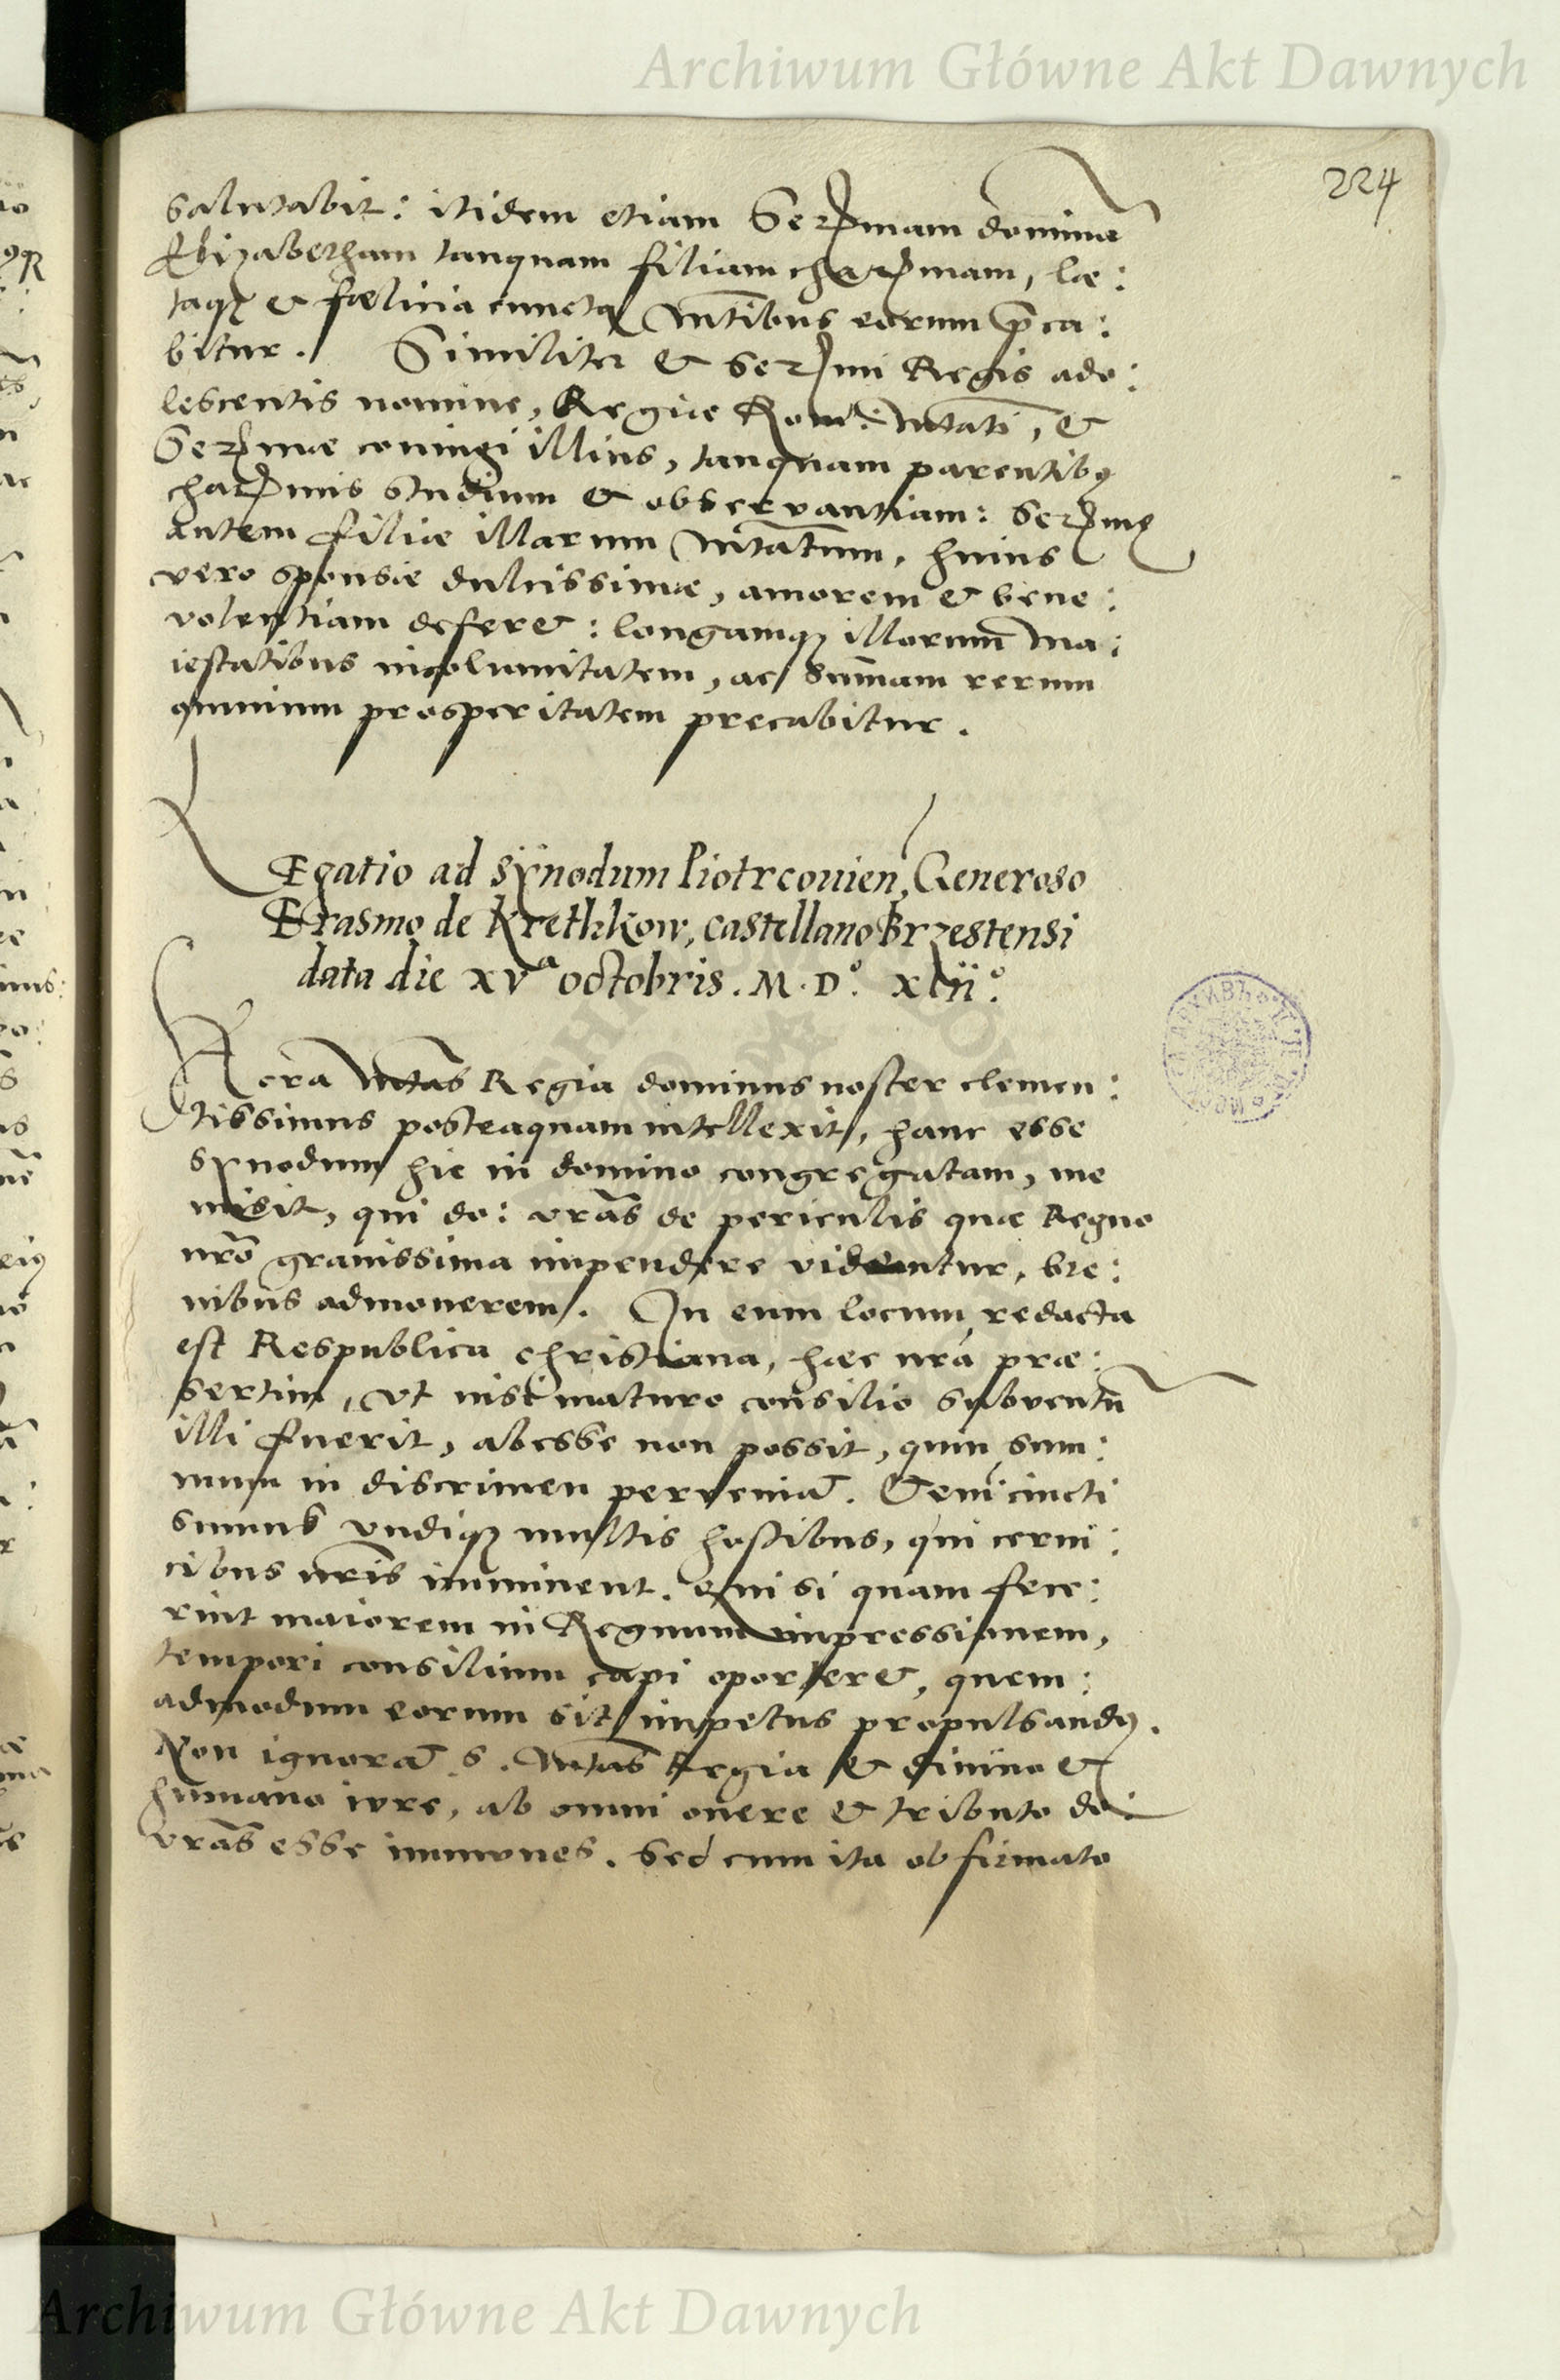 Archiwum Główne Akt Dawnych
224
salutabit: itidem etiam Ser^mam dominā
Elizabetham tanquam filiam char^mam, læ:
taq₃ & fœlicia cuncta Mtibus eorum p̄ca:
bitur. Similiter & Ser^mi Regis ado:
lescentis nomine, Regiæ Rom: Mtati, &
Ser^mæ coniugi illius, tanquam parentib₉
char^mis studium & observantiam: Ser^mę
autem filiæ illarum Mtatum, huius
vero sponsæ dulcissimæ, amorem & bene:
volentiam defer&: longamq₃ illorum ma:
iestatibus incolumitatem, ac sum̄am rerum
omnium prosperitatem precabitur.
LEgatio ad sÿnodum Piotrcouien, Generoso
Erasmo de Krethkow, castellano Brzestensi
data die xvᵃ octobris. M.D°. xlii°.
SAcra Mtas Regia dominus noster clemen:
tissimus posteaquam intellexit, hanc esse
sÿnodum hic in domino congregatam, me
misit, qui do: vrās de periculis quæ Regno
nrō grauissima impendere videantur, bre:
uibus admonerem. In eum locum redacta
est Respublica christiana, hæc nrā præ:
sertim, vt nisi maturo consilio subventū
illi fuerit, abesse non possit, quin sum:
mum in discrimen perveniat. Geni cincti
sumus vndiq₃ multis hostibus, qui cerui:
cibus nrīs imminent. qui si quam fece:
rint maiorem in Regnum impressionem,
tempori consilium capi oporter&, quem:
admodum eorum sit impetus propulsand₉.
Non ignorat S. Mtas Regia & diuino &
humano iure, ab omni onere & tributo do:
vrās esse immunes. Sed cum ita obfirmato
Archiwum Główne Akt Dawnych